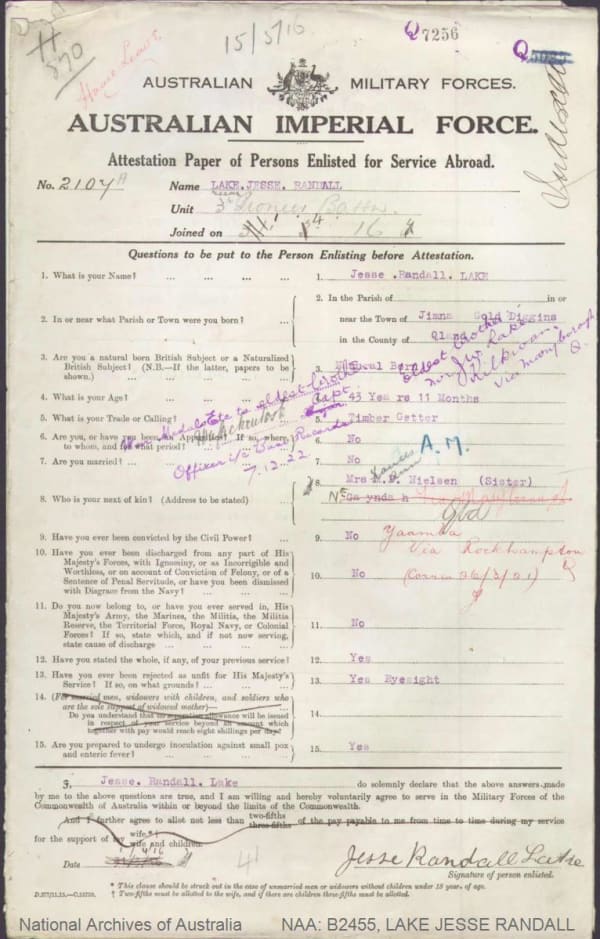 15/5/16
Q7256
Home Leave
AUSTRALIAN MILITARY FORCES.
AUSTRALIAN IMPERIAL FORCE.
Attestation Paper of Persons Enlisted for Service Abroad.
No. 2107A Name LAKE.JESSE. RANDALL
Unit 3rd Pioneer Battn.
Joined on 16
Questions to be put to the Person Enlisting before Attestation.
1. What is your Name? ... ... ... ... 1. Jesse .Randall. LAKE
2. In or near what Parish or Town were you born? ... 2. In the Parish of in or
near the Town of Jimna Gold Diggins
in the County of Qland
3. Are you a natural born British Subject or a Naturalized
British Subject? (N.B.—If the latter, papers to be
shown.) ... ... ... ... 3. Natural Born
oldest brother
Mr Lake
Kilkivan
via Maryborough
Q.
4. What is your Age? ... ... ... 4. 43 Yea rs 11 Months
5. What is your Trade or Calling? ... 5. Timber Getter
Medals Etc to oldest brother
Capt
Officer i/c Base Records
7.12.22
6. Are you, or have you been an Apprentice? If so, where,
to whom, and for what period? 6. No
7. Are you married? ... 7. No
A.M.
8. Who is your next of kin? (Address to be stated) ... 8 Mrs M.P. Nielsen (Sister)
Ga ynda h
Qld
Yaamba
Via Rockhampton
Q
(Corres 26/2/21)
9. Have you ever been convicted by the Civil Power? ... 9. No
10. Have you ever been discharged from any part of His
Majesty's Forces, with Ignominy, or as Incorrigible and
Worthless, or on account of Conviction of Felony, or of a
Sentence of Penal Servitude, or have you been dismissed
with Disgrace from the Navy? ... ... 10. No
11. Do you now belong to, or have you ever served in, His
Majesty's Army, the Marines, the Militia, the Militia
Reserve, the Territorial Force, Royal Navy, or Colonial
Forces? If so, state which, and if not now serving,
state cause of discharge ... ... ... 11. No
12. Have you stated the whole, if any, of your previous service? 12. Yes
13. Have you ever been rejected as unfit for His Majesty's
Service? If so, on what grounds? ... ... 13. Yes Eyesight
14. (For married men, widowers with children, and soldiers who
are the sole support of widowed mother)—
Do you understand that no separation allowance will be issued
in respect of your service beyond an amount which
together with pay would reach eight shillings per day? 14.
15. Are you prepared to undergo inoculation against small pox
and enteric fever? ... ... ... 15. Yes
I, Jesse. Randall. Lake do solemnly declare that the above answers made
by me to the above questions are true, and I am willing and hereby voluntarily agree to serve in the Military Forces of the
Commonwealth of Australia within or beyond the limits of the Commonwealth.
And I further agree to allot not less than two-fifths three-fifths of the pay payable to me from time to time during my service
for the support of my wife*† wife and children.
Date
41
Jesse Randall Lake
Signature of person enlisted.
* This clause should be struck out in the case of unmarried men or widowers without children under 18 years of age.
† Two-fifths must be allotted to the wife, and if there are children three-fifths must be allotted.
National Archives of Australia NAA: B2455, LAKE JESSE RANDALL